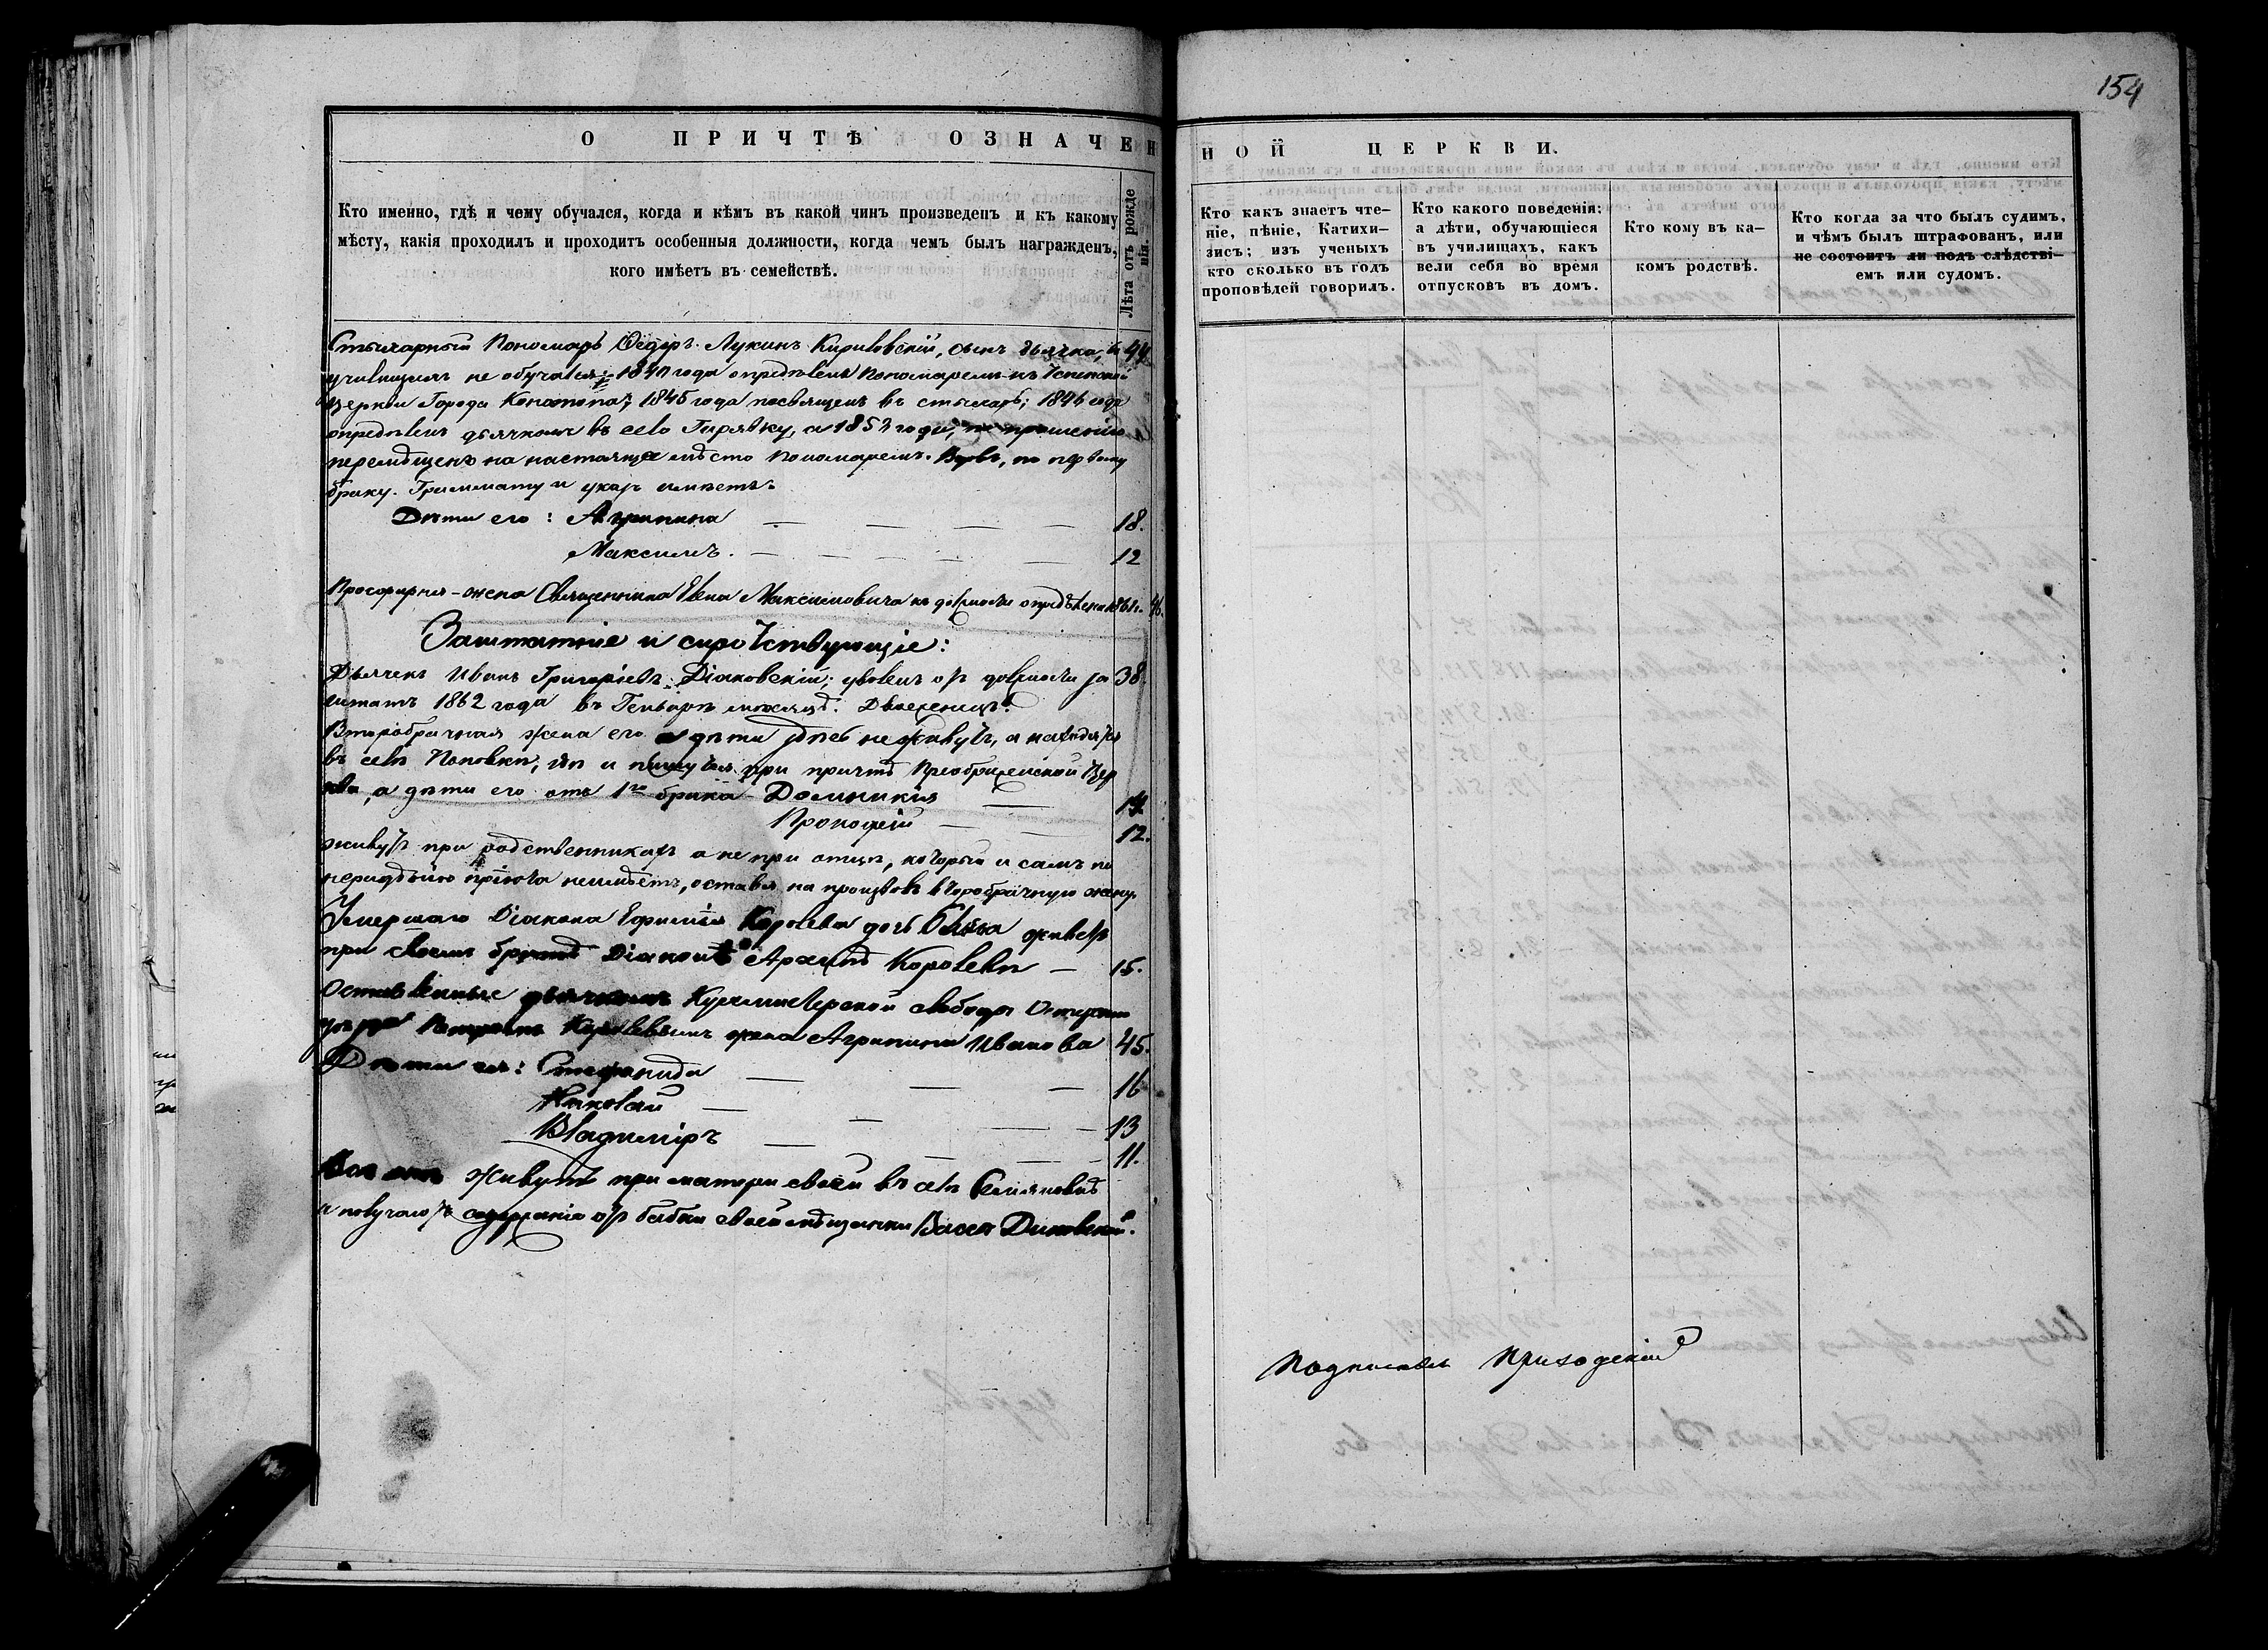 154
О ПРИЧТѢ ОЗНАЧЕН
Кто именно, гдѣ и чему обучался, когда и кѣмъ въ какой чинъ произведенъ и къ какому
мѣсту, какія проходилъ и проходитъ особенныя должности, когда чемъ былъ награжденъ,
кого имѣетъ въ семействѣ.
Лѣта отъ рожде
нія.
Стихарный Пономарь Ѳедоръ Лукинъ Кириловскій, сынъ дьячка, въ 44
училищахъ не обучался; 1840 года опредѣленъ Пономаремъ къ Успенской
Церкви Города Конотопа; 1845 года посвященъ въ стихарь; 1846 года
опредѣленъ дьячкомъ въ село Гирявку, а 1852 года, по прошенію
перемѣщенъ на настоящее мѣсто Пономаремъ. Вдовъ, по первому
браку. Граммату и указъ имѣетъ.
Дѣти его: Агрипина 18.
Максимъ. 12
Просфирня – жена Священника Максимовича къ должности опредѣлена 46.
Заштатніе и сиротствующіе:
Дьячекъ Иванъ Григоріевъ Діаковскій; уволенъ отъ должности за 38.
штатъ 1862 года въ Генварѣ мѣсяцѣ. Двоеженецъ.
Второбрачная жена его а дѣти здѣсь не живутъ, а находятся
въ селѣ Поповкѣ, гдѣ и пишутся при причтѣ Преображенской Цер
кви, а дѣти его отъ 1го брака Домникія 14.
Прокофій 12.
живутъ при родственникахъ а не при отцѣ, который и самъ по
нерадѣнію пріюта неимѣетъ, оставя на произволъ второбрачную жену.
Умершаго Діакона Ефимія Королева дочь живетъ
при своемъ братѣ Діаконѣ Королевѣ – 15.
Оставленные дьячкомъ свободы
Королевымъ жена Агрипина Иванова 45.
Дѣти ея: Стефанида 16
Николай 13
Владиміръ 11.
Всѣ они живутъ при матери своей въ селѣ
и получаютъ содержаніе отъ бабки своей мѣщанки
НОЙ ЦЕРКВИ.
Кто какъ знаетъ чте-
ніе, пѣніе, Катихи-
зисъ; изъ ученыхъ
кто сколько въ годъ
проповѣдей говорилъ.
Кто какого поведенія:
а дѣти, обучающіеся
въ училищахъ, какъ
вели себя во время
отпусковъ въ домъ.
Кто кому въ ка-
комъ родствѣ.
Кто когда за что былъ судимъ,
и чѣмъ былъ штрафованъ, или
не состоитъ ли подъ слѣдстві-
емъ или судомъ.
Подписалъ Приходскій